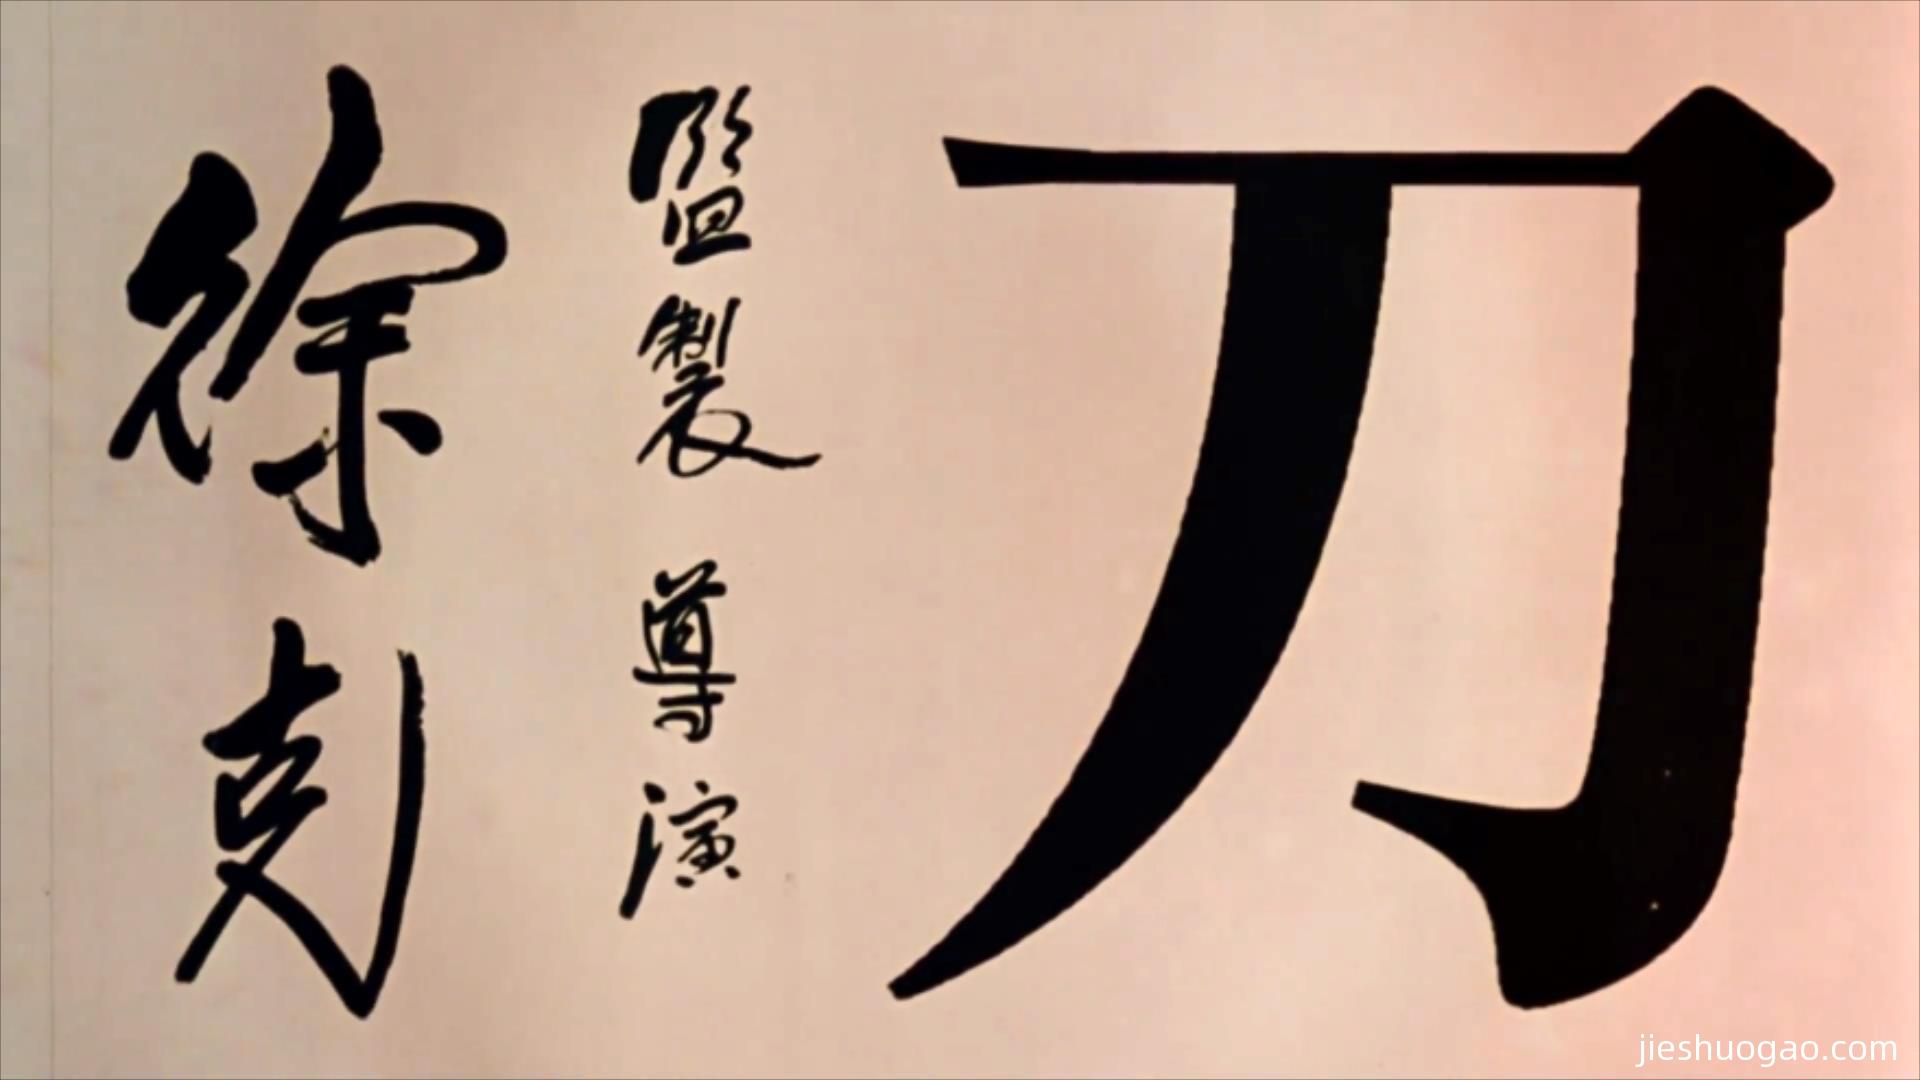 刀
監製 導演
徐克
jieshuogao.com